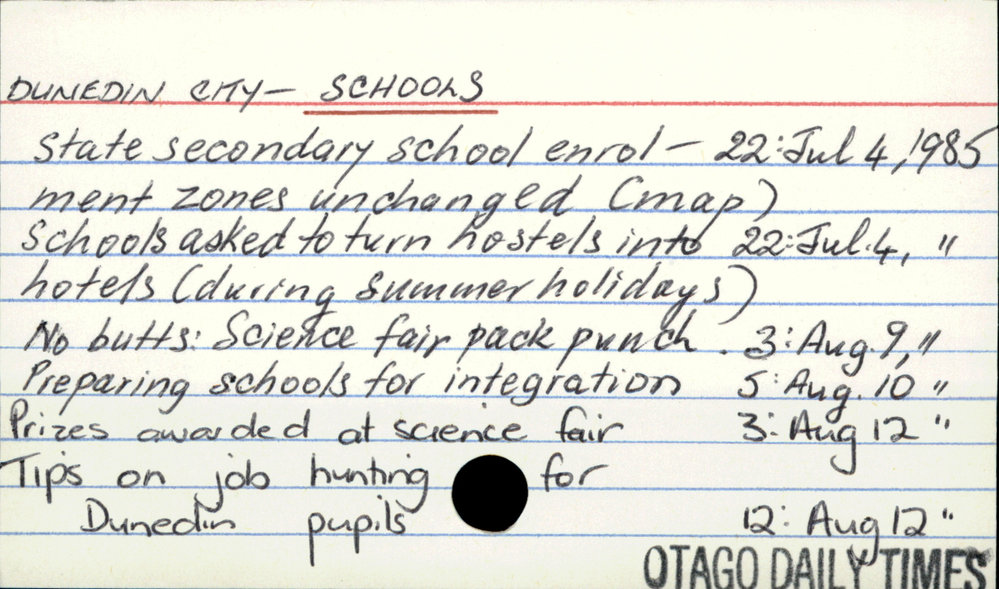 DUNEDIN CITY — SCHOOLS
State secondary school enrol — 22: Jul 4, 1985
ment zones unchanged (map)
Schools asked to turn hostels into 22: Jul. 4, "
hotels (during Summer holidays)
No butts: Science fair pack punch . 3: Aug. 9, "
Preparing schools for integration 5: Aug. 10 "
Prizes awarded at science fair 3: Aug 12 "
Tips on job hunting for
Dunedin pupils 12: Aug 12 "
OTAGO DAILY TIMES